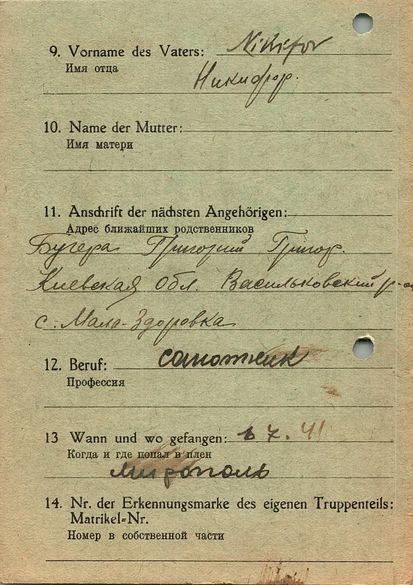 9. Vorname des Vaters: Nikifor
Имя отца
Никифор.
10. Name der Mutter:
Имя матери
11. Anschrift der nächsten Angehörigen:
Адрес ближайших родственников
Бугера Григорий Григор.
Киевская обл. Васильковский р-
с. Мало-Здоровка
12. Beruf: сапожник
Профессия
13 Wann und wo gefangen: 7. 41
Когда и где попал в плен
Мирополь
14. Nr. der Erkennungsmarke des eigenen Truppenteils:
Matrikel-Nr.
Номер в собственной части